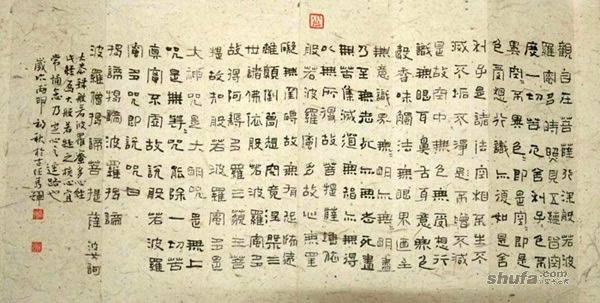 觀自在菩薩行深般若波
羅蜜多時照見五蘊皆空
度一切苦厄舍利子色不
異空空不異色色即是空空即是
色受想行識亦復如是舍
利子是諸法空相不生不
滅不垢不淨不增不減
是故空中無色無受想行
識無眼耳鼻舌身意無色
聲香味觸法無眼界乃至
無意識界無無明亦無無明盡
乃至無老死亦無老死盡
無苦集滅道無智亦無得
以無所得故菩提薩埵依
般若波羅蜜多故心無罣
礙無罣礙故無有恐怖遠
離顛倒夢想究竟涅槃三
世諸佛依般若波羅蜜多
故得阿耨多羅三藐三菩
提故知般若波羅蜜多是
大神咒是大明咒是無上
咒是無等等咒能除一切苦
真實不虛故說般若波羅
蜜多咒即說咒曰
揭諦揭諦波羅揭諦
波羅僧揭諦菩提薩婆訶
般若波羅蜜多心經
大般若經之核心宜
常誦
歲次丙申初秋於古任
shufa.com